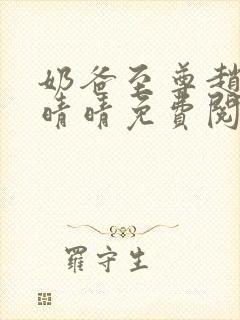 奶爸至尊趙
晴晴免費閱
羅守生